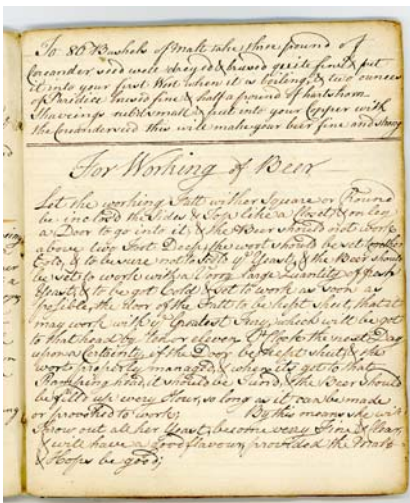 To 86 Bushels of Malt take three pound of
Coreander seed well dryed & brused quite fine & put
it into your first Wort when it is boileing, & two ounces
of Paradice brused fine & half a pound of hartshorn
Shaveings rubd small & put into your Copper with
the Coreander seed this will make your beer fine and strong
For Working of Beer
Let the working Fatt either Square or Round
be inclosd the Sides & Top like a Closet, & only
a Door to go into it, & the Beer should not work
above two Foot Deep, the wort should be set
Cold, & to be sure not to Scald ye Yeast, & the Beer should
be set to work with a Very large Quantity of fresh
Yeast, & to be got Cold & set to work as soon as
possible, the door of the Fatt to be kept shut, that it
may work with ye Greatest Fury, which will be got
to that head by ten or eleven O'Clock the next Day
upon a Certainty, if the Door be kept shut, & the
wort properly managed, & when its got to that
head, it should be Tund, & the Beer should
be filld up every Hour, so long as it can be made
or provoked to work; By this means she will
throw out all her Yeast, become very Fine & Clear,
& will have a Good flavour, provided the Malt
& Hops be good;